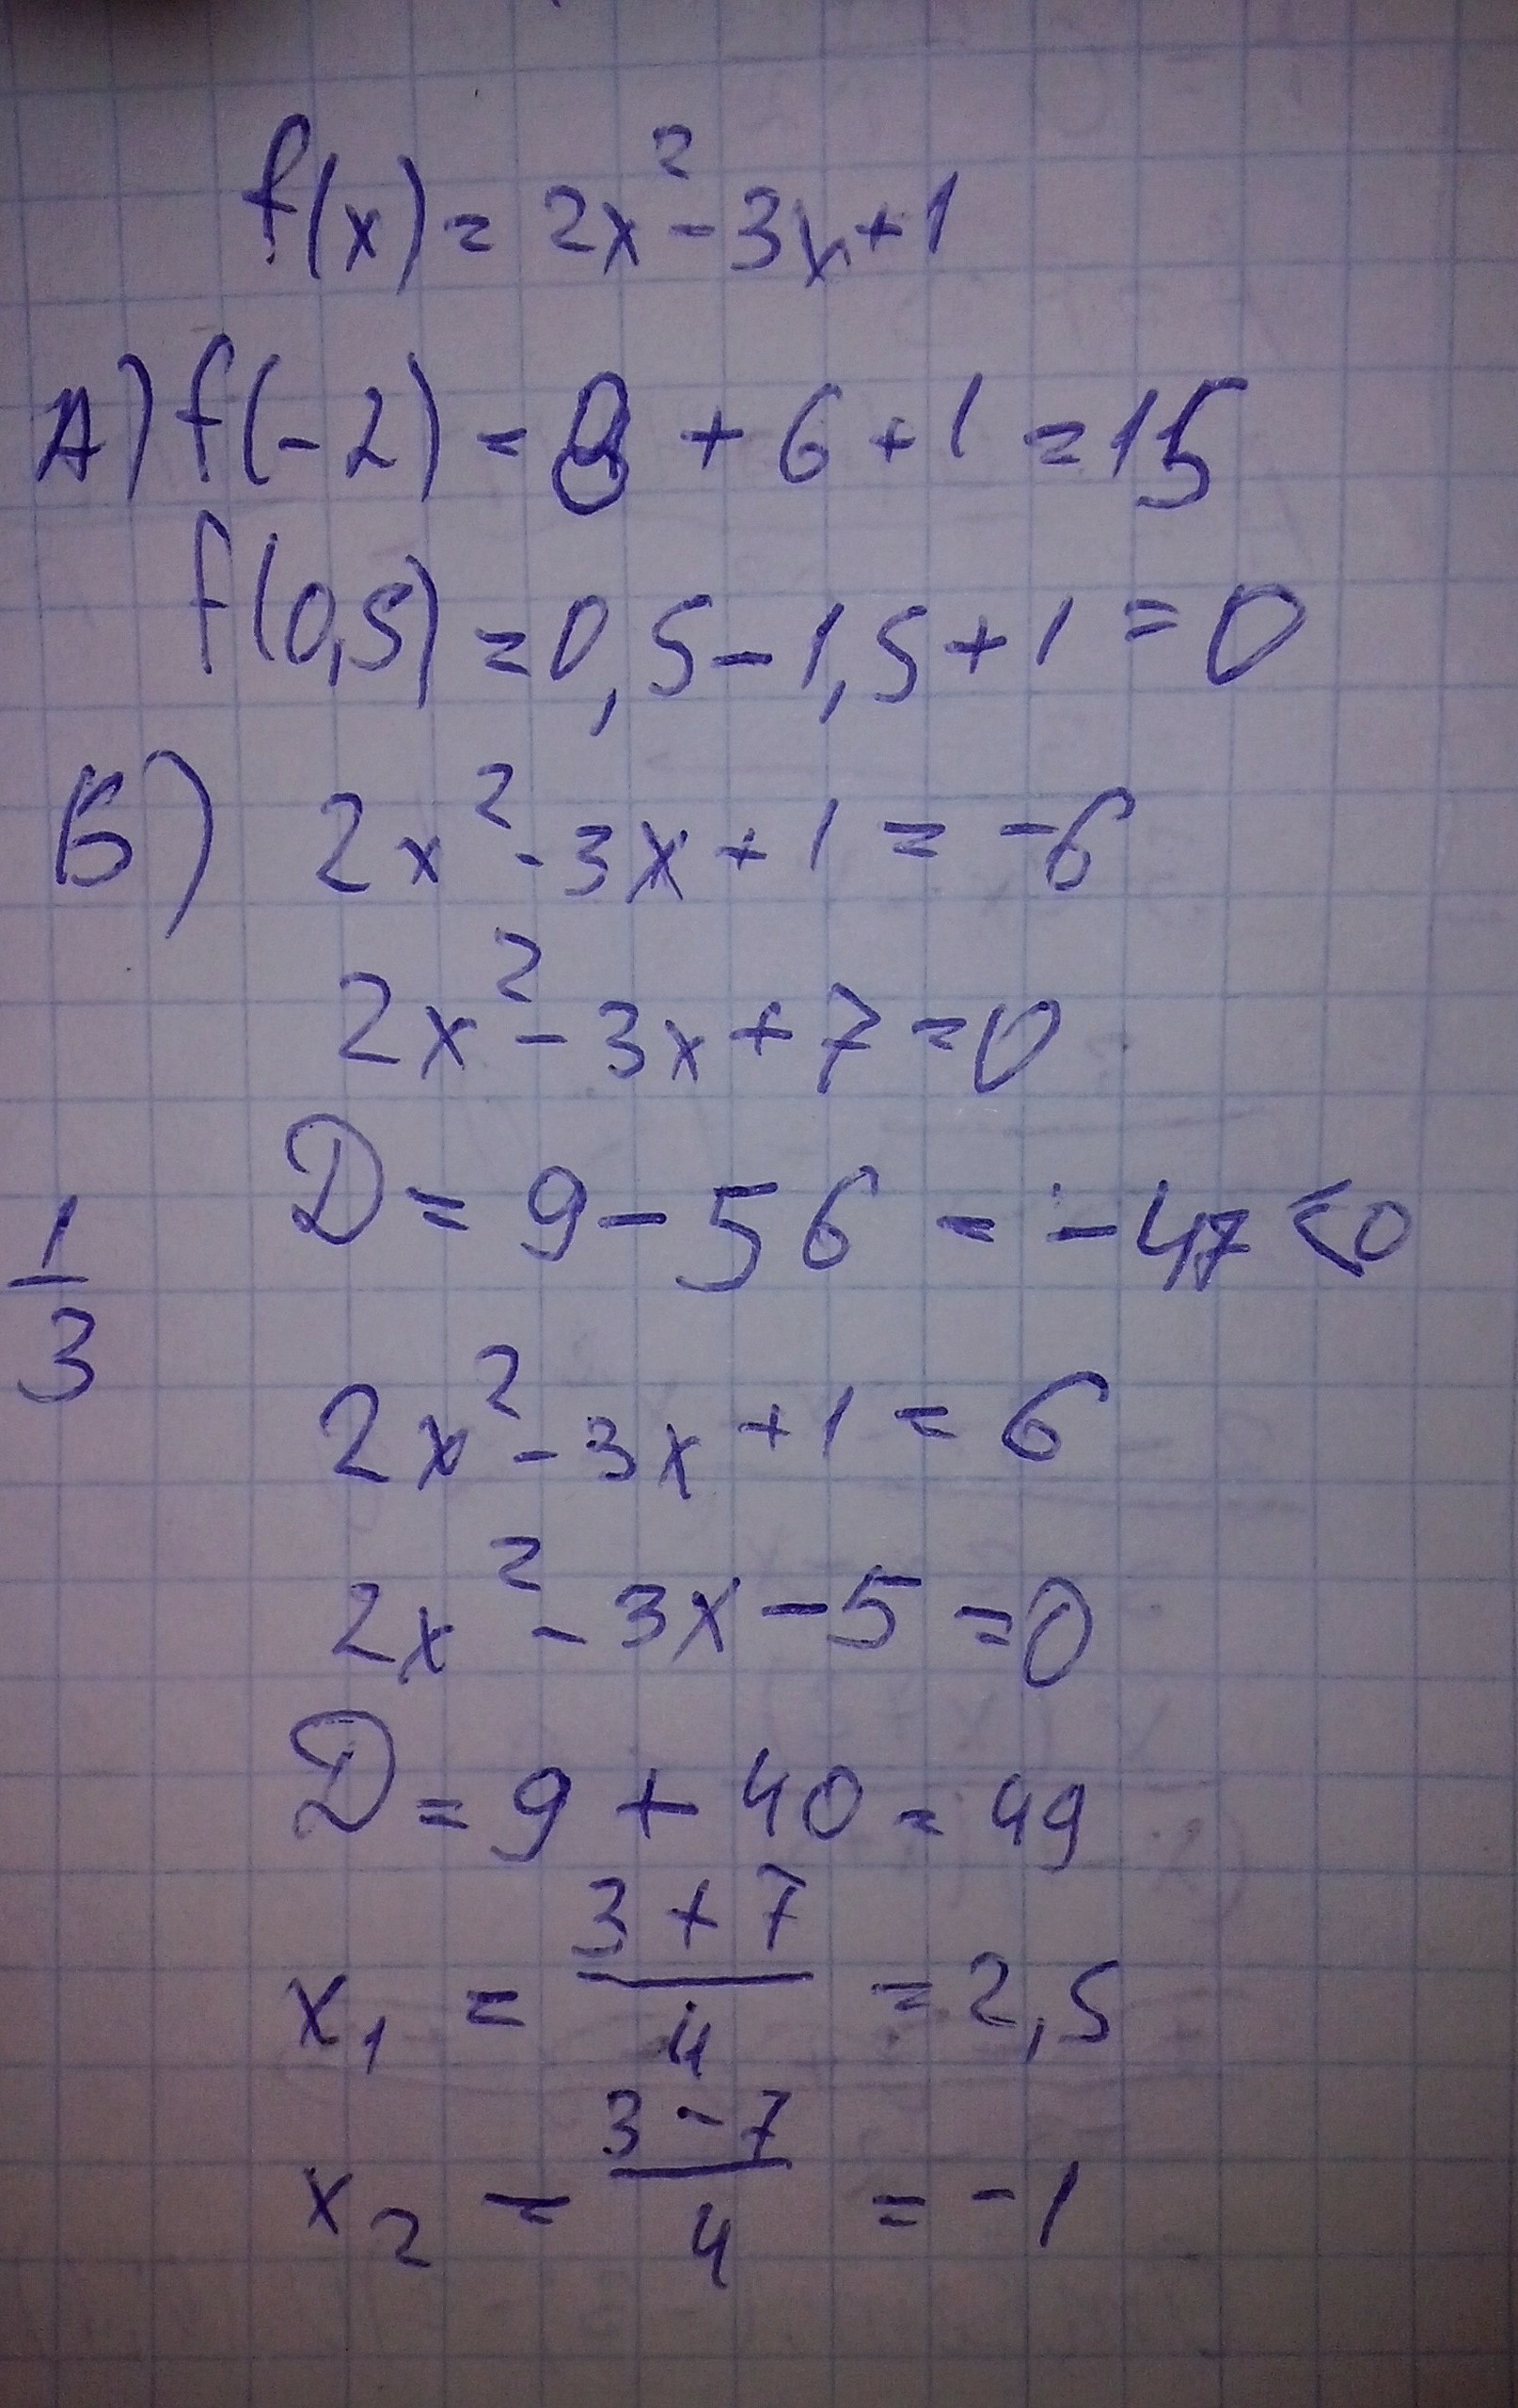 f(x) = 2x² - 3x + 1
А) f(-2) = 8 + 6 + 1 = 15
f(0,5) = 0,5 - 1,5 + 1 = 0
Б) 2x² - 3x + 1 = -6
2x² - 3x + 7 = 0
D = 9 - 56 = -47 < 0
1/3
2x² - 3x + 1 = 6
2x² - 3x - 5 = 0
D = 9 + 40 = 49
x₁ = (3 + 7)/4 = 2,5
x₂ = (3 - 7)/4 = -1